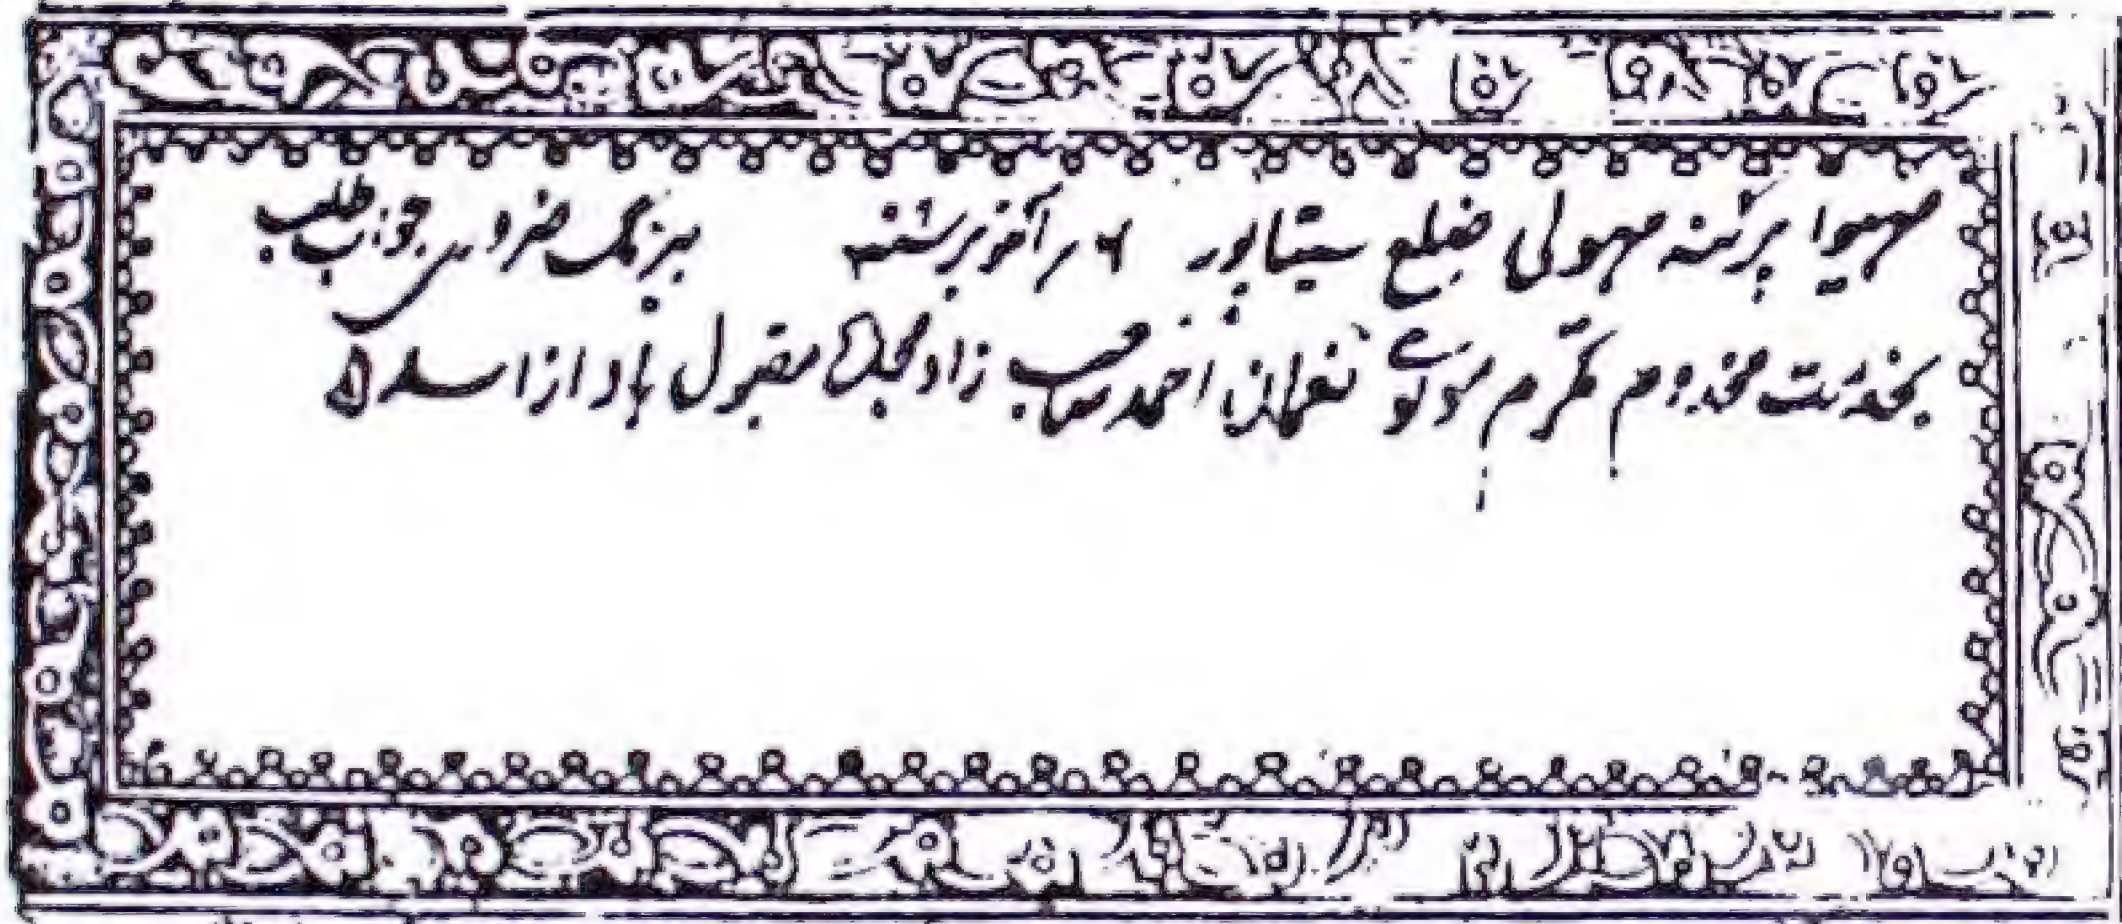 صہیوا پرگنہ مہولی ضلع سیتاپور ۶ر اکتوبر سنہ بیرنگ ضروری جواب طلب
بخدمت مخدوم مکرم مولوی نعمان احمد صاحب زاد مجدہ مقبول باد از اسلام